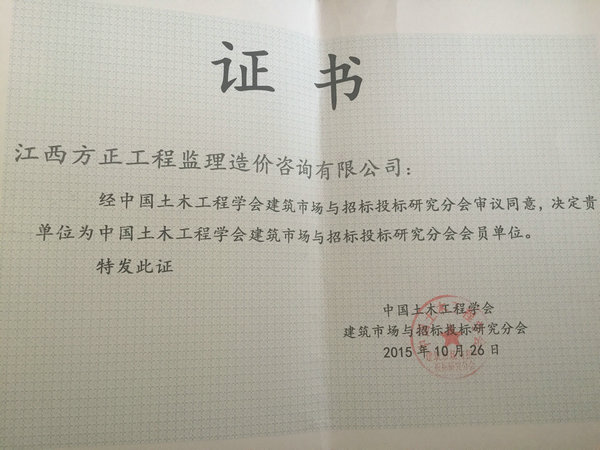 证书
江西方正工程监理造价咨询有限公司：
经中国土木工程学会建筑市场与招标投标研究分会审议同意，决定贵
单位为中国土木工程学会建筑市场与招标投标研究分会会员单位。
特发此证
中国土木工程学会
建筑市场与招标投标研究分会
2015年10月26日
招标研究分会